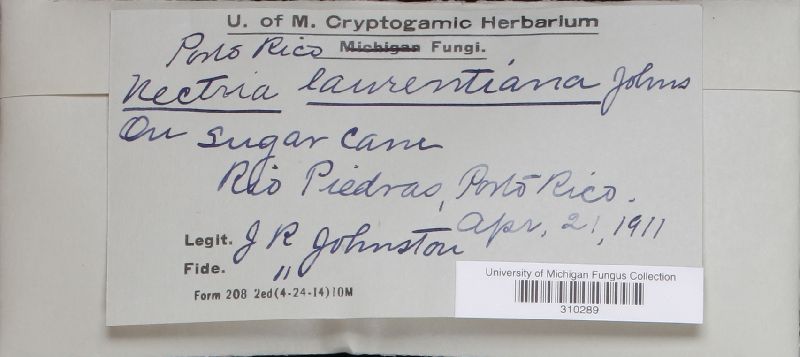 U. of M. Cryptogamic Herbarium
Porto Rico Michigan Fungi.
Nectria laurentiana Johns
On sugar cane
Rio Piedras, Porto Rico.
Apr, 21, 1911
Legit. J R Johnston
Fide. "
Form 208 2ed(4-24-14)10M
University of Michigan Fungus Collection
310289